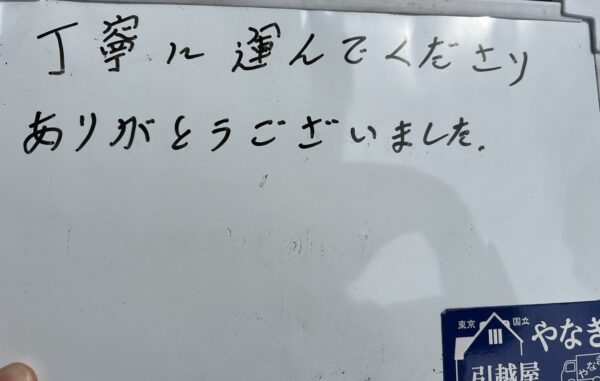 丁寧に運んでくださり
ありがとうございました.
東京 国立 やなぎ
引越屋
やなぎ